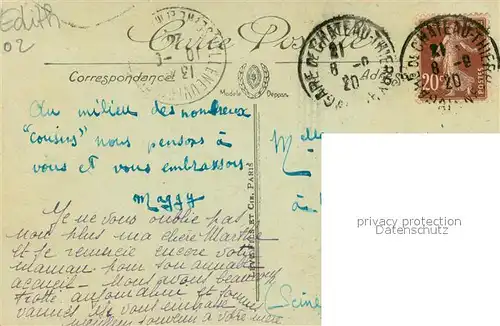 Edith
02
Carte Postale
Correspondance
Modèle Déposé
GARE DE CHATEAU-THIERRY
18
8 -9
20
GARE DE CHATEAU-THIERRY
18
8 -9
20
20
13
10
Au milieu des nombreux
"cousins" nous pensons à
vous et vous embrassons
Maggy
Je ne vous oublie pas
non plus ma chère Marthe
et je remercie encore votre
maman pour son aimable
accueil. Nous avons beaucoup
trotté aujourd'hui et sommes
vannés. Je vous embrasse
souvenir à votre mère
ET CIE, PARIS
Mlle
à
(Seine
privatsphäre
Datenschutz